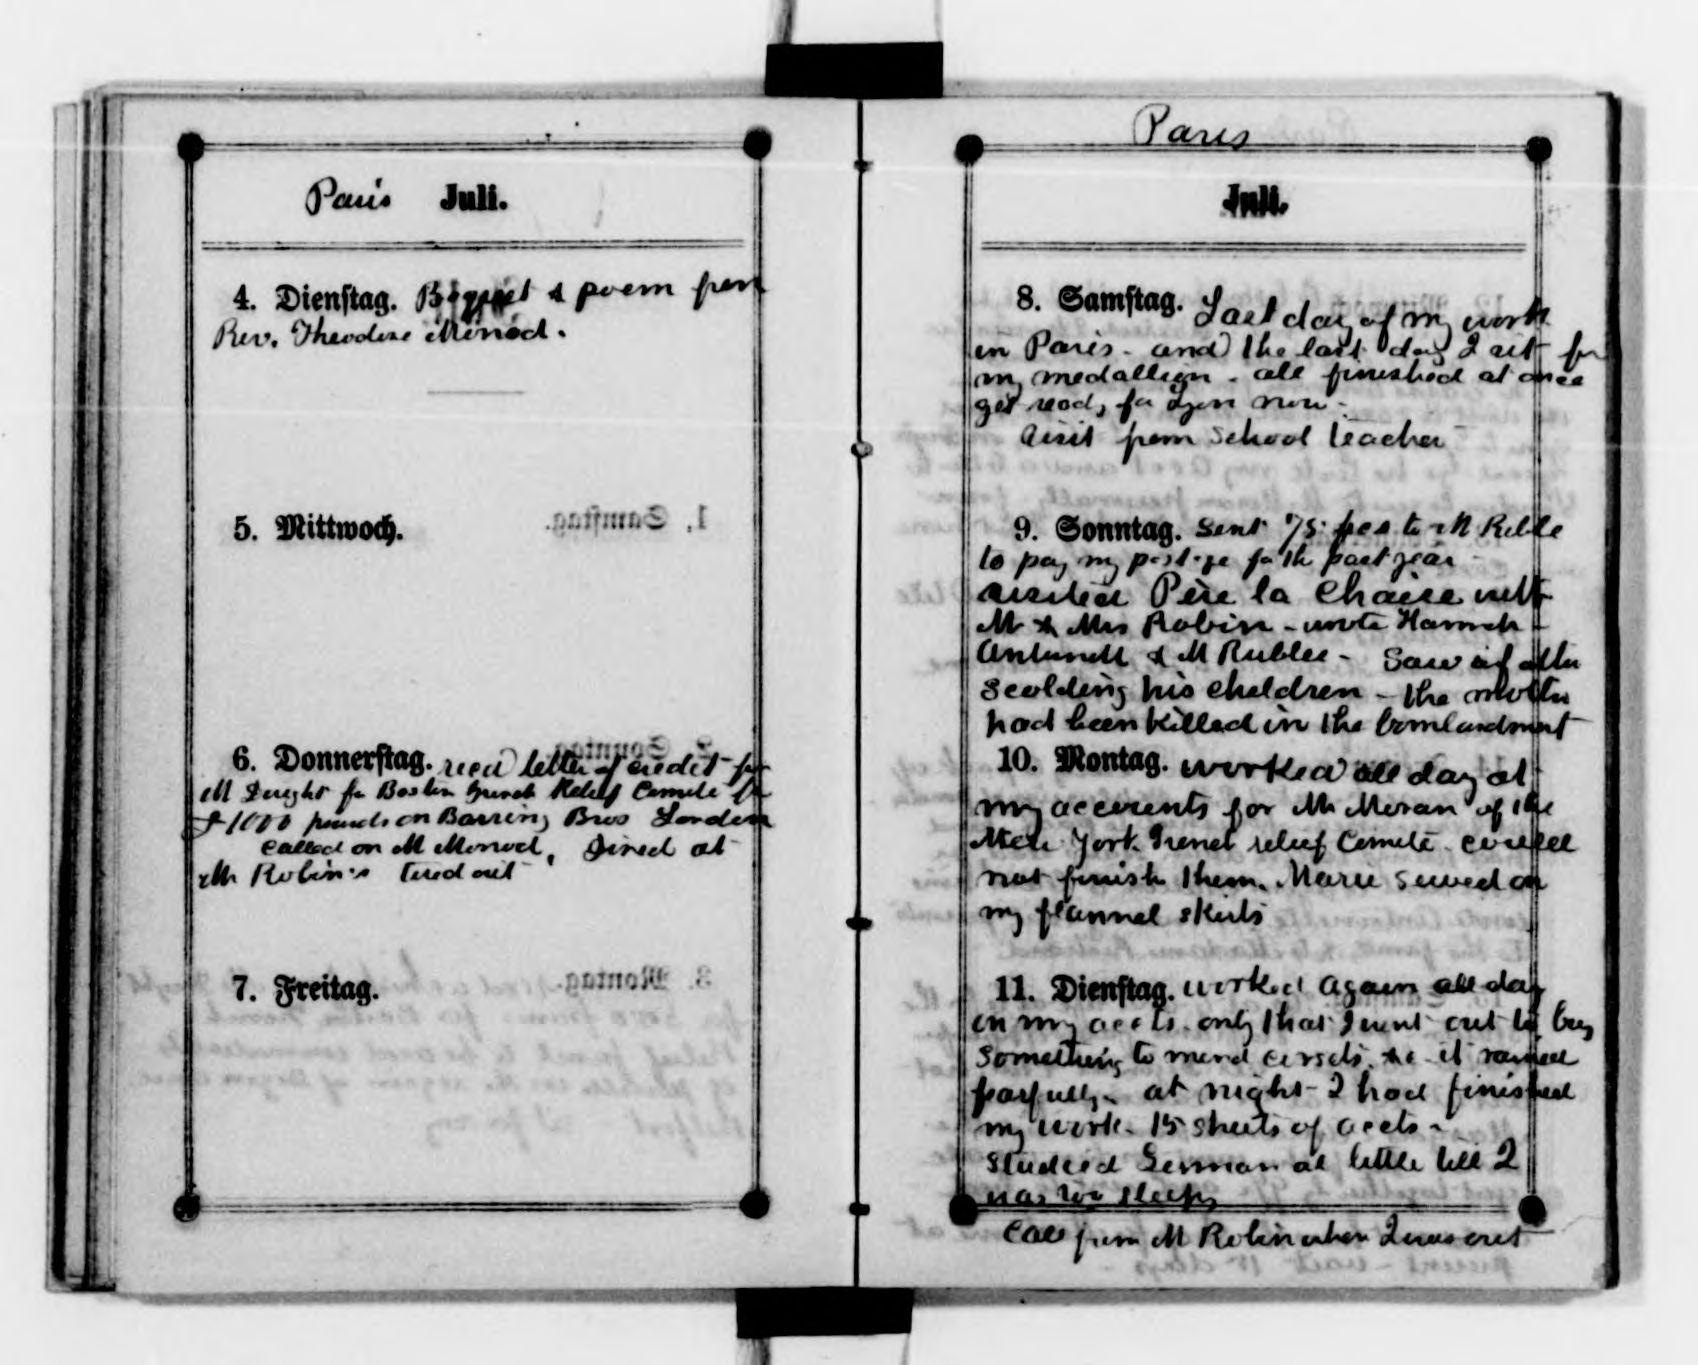 Paris Juli.
4. Dienstag. Boquet & poem from
Rev. Theodore Monod.
5. Mittwoch.
6. Donnerstag. recd letter of credit for
M Dwight fr Boston French Relief Comite for
£ 1000 pounds on Barring Bros London
called on M Monod, Dined at
Mr Robin's tired out
7. Freitag.
Paris
Juli.
8. Samstag. Last day of my work
in Paris - and the last day I sit for
my medallion - all finished at once
get ready for Lyon now -
visit from School teacher
9. Sonntag. Sent 75 fcs to M Rublee
to pay my postage for the past year -
visited Père la Chaise with
M & Mrs Robin - wrote Hannah -
Antoinette & M Rublee - Saw
Scolding his children - the mother
had been killed in the bombardment
10. Montag. worked all day at
my accounts for Mr Moran of the
New York French relief Comite - could
not finish them. Marie sewed on
my flannel skirts
11. Dienstag. worked again all day
on my accts. only that I went out to buy
something to mend corsets &c - it rained
fearfully - at night I had finished
my work - 15 sheets of accts -
Studied German a little till I
was too sleepy
Call from M Robin when I was out